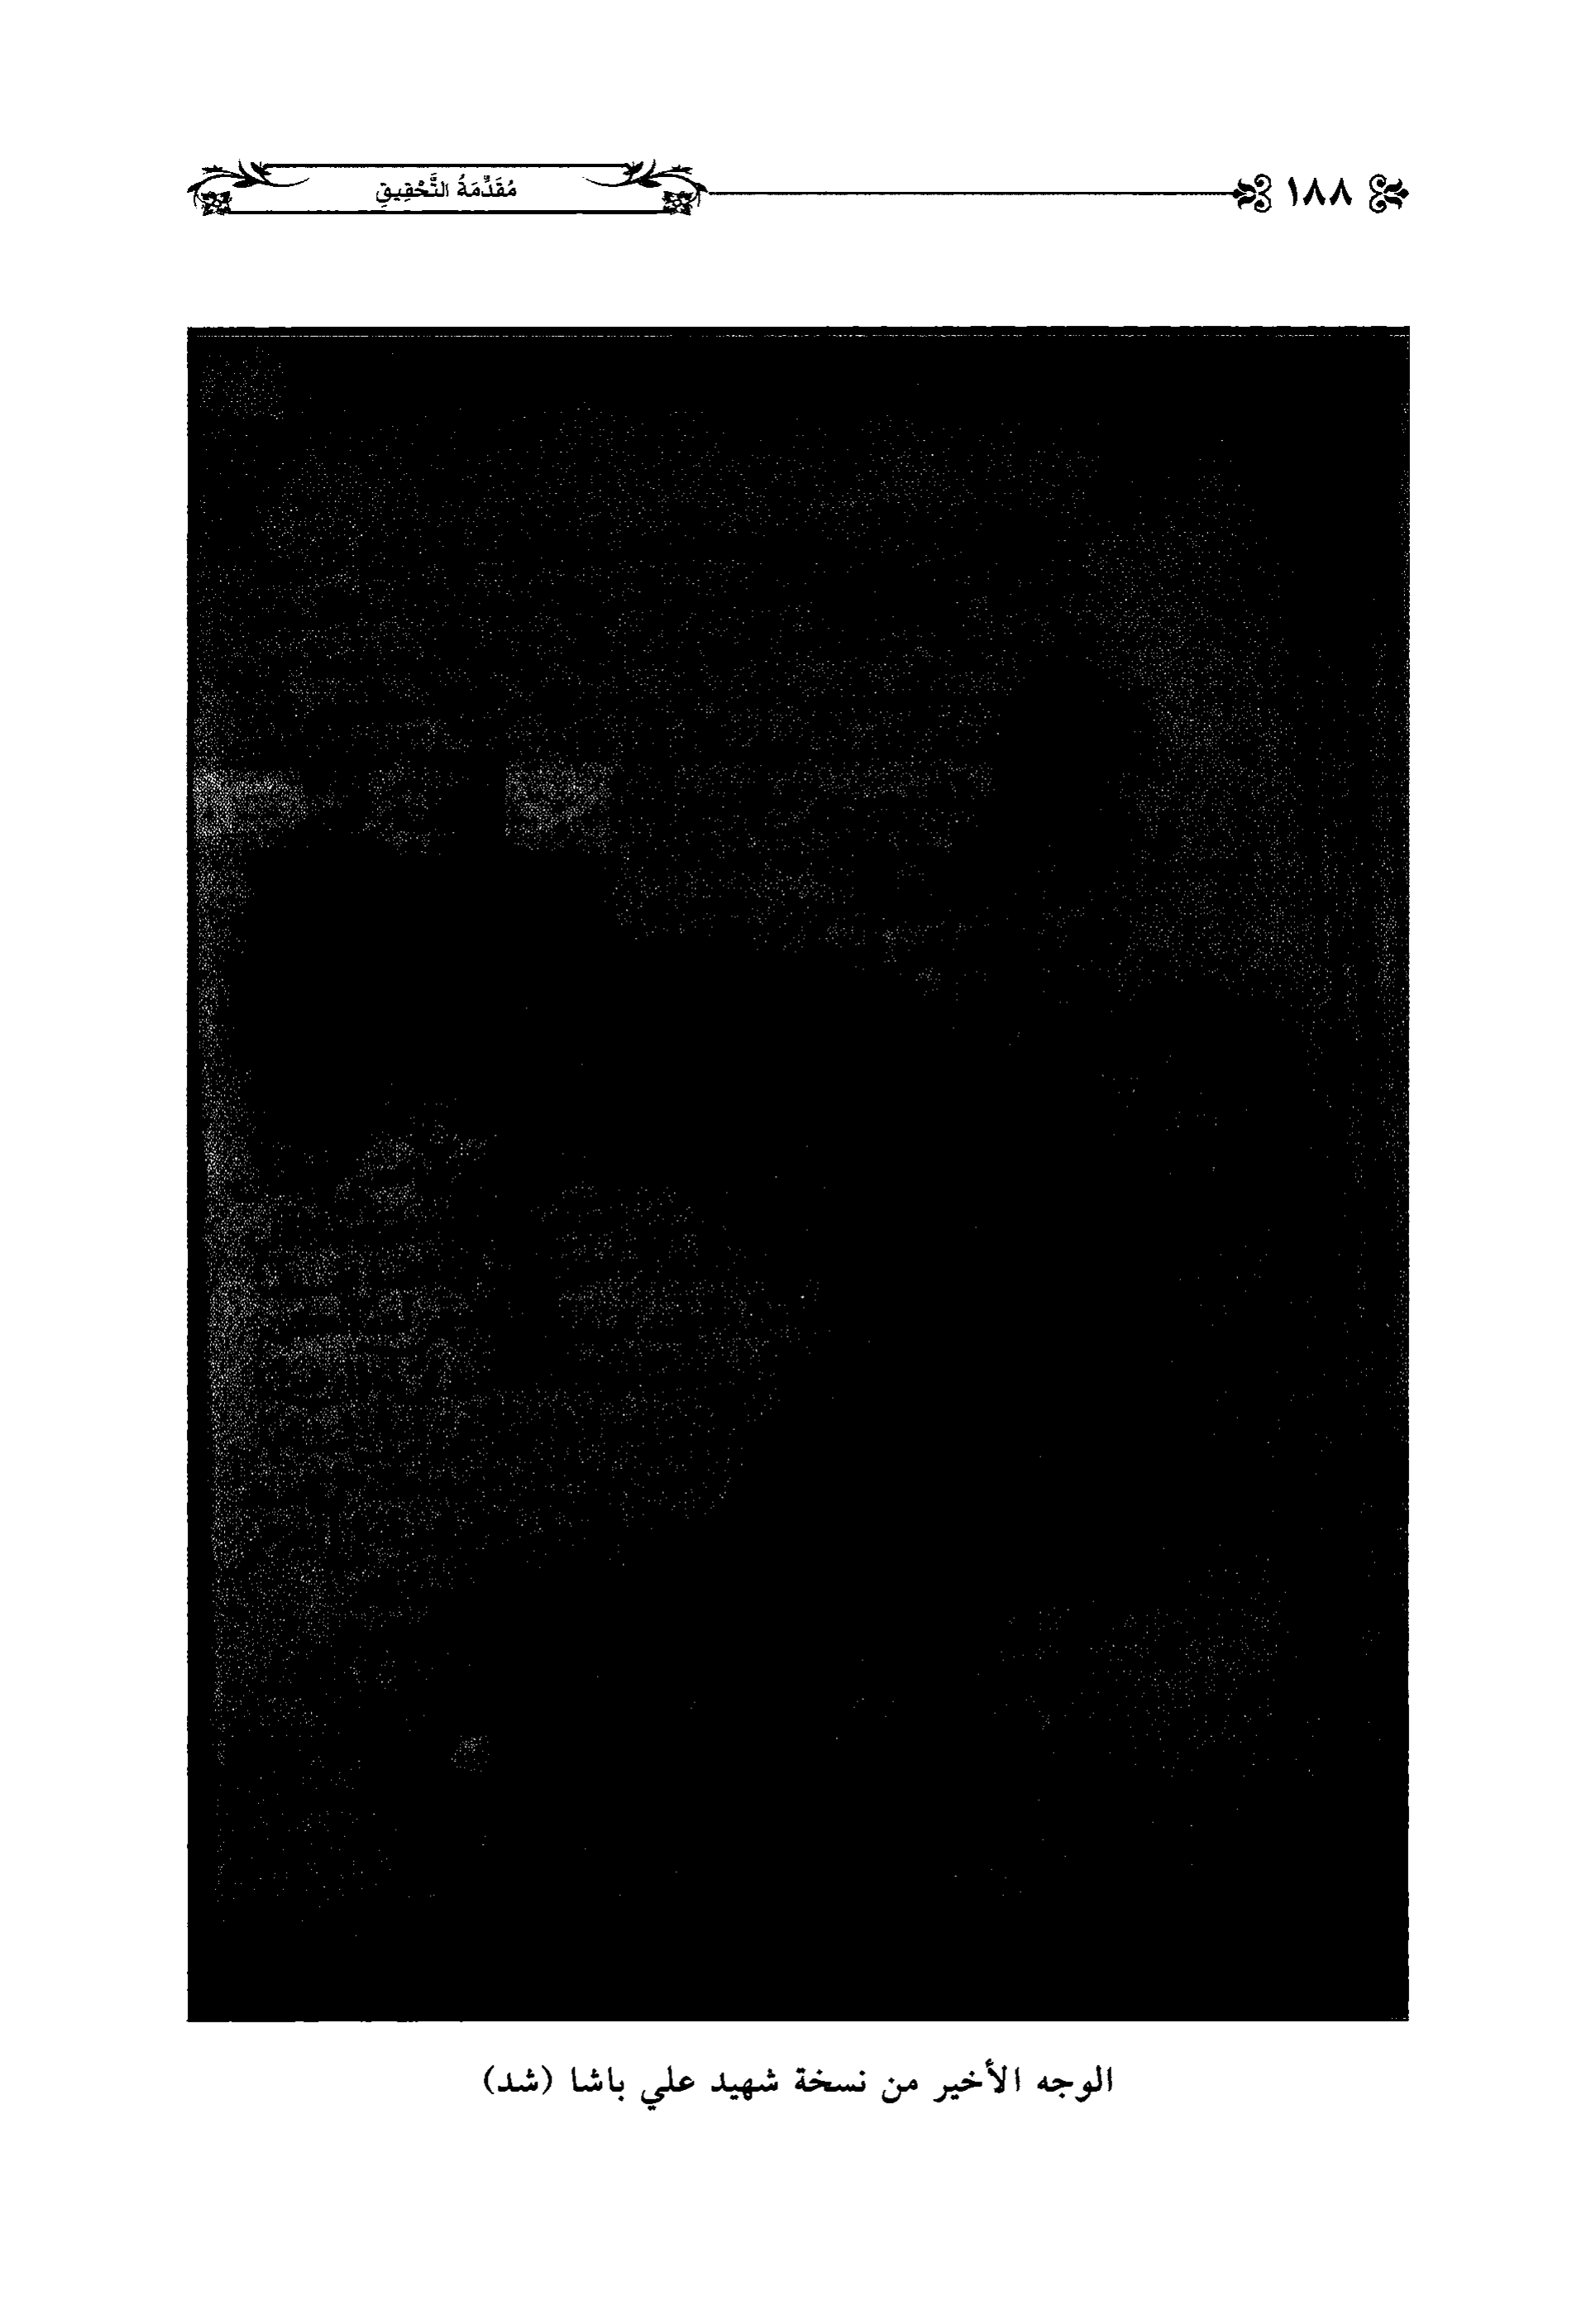 ١٨٨
مُقَدِّمَةُ التَّحْقِيقِ
الوجه الأخير من نسخة شهيد علي باشا (شد)